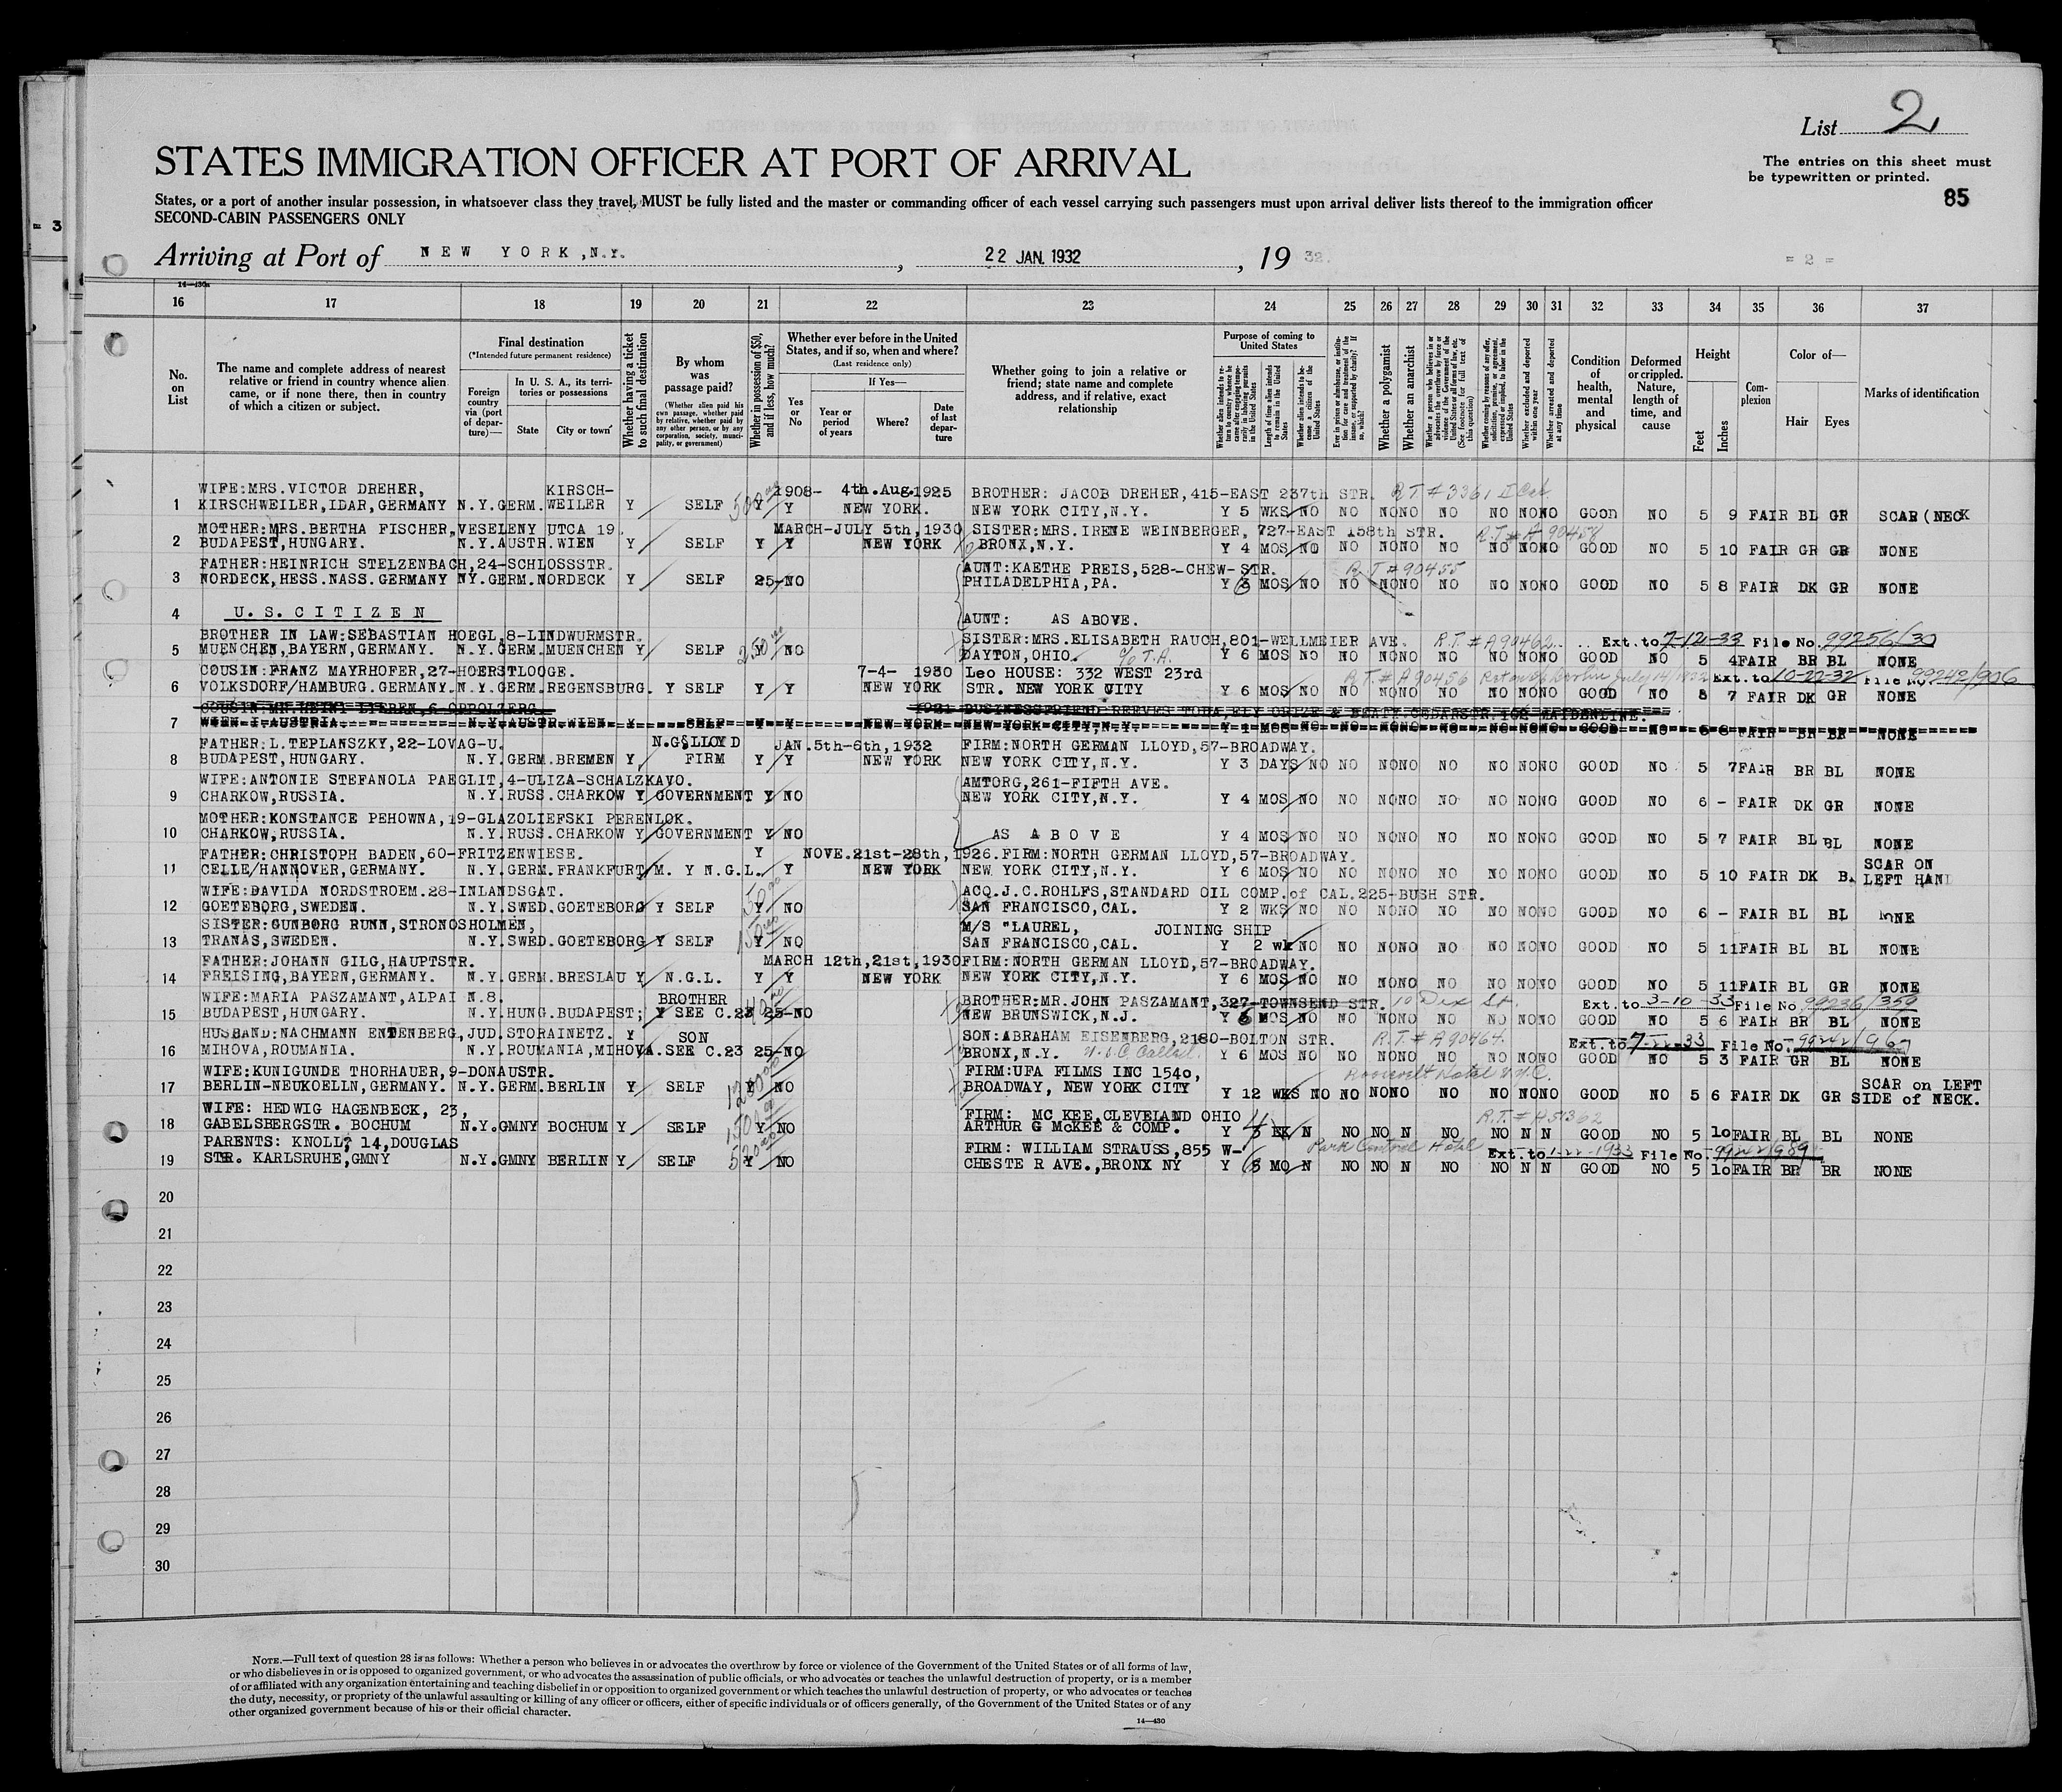 List 2
STATES IMMIGRATION OFFICER AT PORT OF ARRIVAL
The entries on this sheet must
be typewritten or printed.
85
States, or a port of another insular possession, in whatsoever class they travel, MUST be fully listed and the master or commanding officer of each vessel carrying such passengers must upon arrival deliver lists thereof to the immigration officer
SECOND-CABIN PASSENGERS ONLY
= 3
Arriving at Port of NEW YORK, N.Y. , 22 JAN. 1932 , 19 32. = 2 =
16 17 18 19 20 21 22 23 24 25 26 27 28 29 30 31 32 33 34 35 36 37
No. on List
The name and complete address of nearest relative or friend in country whence alien came, or if none there, then in country of which a citizen or subject.
Final destination
(*Intended future permanent residence)
Foreign country via (port of departure)—
In U. S. A., its territories or possessions
State
City or town
Whether having a ticket to such final destination
By whom was passage paid?
(Whether alien paid his own passage, whether paid by relative, whether paid by any other person, or by any corporation, society, municipality, or government)
Whether in possession of $50, and if less, how much?
Whether ever before in the United States, and if so, when and where?
(Last residence only)
Yes or No
If Yes—
Year or period of years
Where?
Date of last departure
Whether going to join a relative or friend; state name and complete address, and if relative, exact relationship
Purpose of coming to United States
Length of time alien intends to remain in the United States
Whether alien intends to become a citizen of the United States
Whether a polygamist
Whether an anarchist
Whether excluded and deported within one year
Whether arrested and deported at any time
Condition of health, mental and physical
Deformed or crippled. Nature, length of time, and cause
Height
Feet
Inches
Complexion
Color of—
Hair
Eyes
Marks of identification
WIFE:MRS.VICTOR DREHER, KIRSCH- 1908- 4th.Aug.1925 BROTHER: JACOB DREHER,415-EAST 237th STR.
1 KIRSCHWEILER,IDAR,GERMANY N.Y.GERM.WEILER Y SELF Y Y NEW YORK. NEW YORK CITY,N.Y. Y 5 WKS NO NO NO NO NO NO NO NO GOOD NO 5 9 FAIR BL GR SCAR(NECK
MOTHER:MRS.BERTHA FISCHER,VESELENY UTCA 19. MARCH-JULY 5th,1930 SISTER:MRS.IRENE WEINBERGER, 727-EAST 158th STR. R.T.# A 90458
2 BUDAPEST,HUNGARY. N.Y.AUSTR.WIEN Y SELF Y Y NEW YORK BRONX,N.Y. Y 4 MOS NO NO NO NO NO NO NO NO GOOD NO 5 10 FAIR GR GR NONE
FATHER:HEINRICH STELZENBACH,24-SCHLOSSSTR. AUNT:KAETHE PREIS,528-CHEW-STR. R.T.#90455
3 NORDECK,HESS.NASS.GERMANY NY.GERM.NORDECK Y SELF 25-NO PHILADELPHIA,PA. Y 6 MOS NO NO NO NO NO NO NO NO GOOD NO 5 8 FAIR DK GR NONE
4 U.S.CITIZEN AUNT: AS ABOVE.
BROTHER IN LAW:SEBASTIAN HOEGL,8-LINDWURMSTR. 250 SISTER:MRS.ELISABETH RAUCH,801-WELLMEIER AVE. R.T.#A90462 Ext. to 7-12-33 File No. 99256/30
5 MUENCHEN,BAYERN,GERMANY. N.Y.GERM.MUENCHEN Y SELF Y NO DAYTON,OHIO. Y 6 MOS NO NO NO NO NO NO NO NO GOOD NO 5 4 FAIR BR BL NONE
COUSIN:FRANZ MAYRHOFER,27-HOERSTLOOGE. 7-4- 1930 Leo HOUSE: 332 WEST 23rd R.T.#A90456 Ext. to 10-22-32 File No. 99242/906
6 VOLKSDORF/HAMBURG.GERMANY.N.Y.GERM.REGENSBURG. Y SELF Y Y NEW YORK STR. NEW YORK CITY Y 6 MOS NO NO NO NO NO NO NO NO GOOD NO 5 7 FAIR DK GR NONE
7 WIEN I.AUSTRIA. N.Y.AUSTR.WIEN Y SELF Y Y NEW YORK NEW YORK CITY,N.Y. Y 1 MOS NO NO NO NO NO NO NO NO GOOD NO 5 8 FAIR BR BR NONE
FATHER:L.TEPLANSZKY,22-LOVAG-U. N.G.LLOYD JAN.5th-6th,1932 FIRM:NORTH GERMAN LLOYD,57-BROADWAY.
8 BUDAPEST,HUNGARY. N.Y.GERM.BREMEN Y FIRM Y Y NEW YORK NEW YORK CITY,N.Y. Y 3 DAYS NO NO NO NO NO NO NO NO GOOD NO 5 7 FAIR BR BL NONE
WIFE:ANTONIE STEFANOLA PAEGLIT,4-ULIZA-SCHALZKAVO. AMTORG,261-FIFTH AVE.
9 CHARKOW,RUSSIA. N.Y.RUSS.CHARKOW Y GOVERNMENT Y NO NEW YORK CITY,N.Y. Y 4 MOS NO NO NO NO NO NO NO NO GOOD NO 6 - FAIR DK GR NONE
MOTHER:KONSTANCE PEHOWNA,19-GLAZOLIEFSKI PERENLOK.
10 CHARKOW,RUSSIA. N.Y.RUSS.CHARKOW Y GOVERNMENT Y NO AS ABOVE Y 4 MOS NO NO NO NO NO NO NO NO GOOD NO 5 7 FAIR BL BL NONE
FATHER:CHRISTOPH BADEN,60-FRITZENWIESE. Y NOVE.21st-28th,1926.FIRM:NORTH GERMAN LLOYD,57-BROADWAY. SCAR ON
11 CELLE/HANNOVER,GERMANY. N.Y.GERM.FRANKFURT/M. Y N.G.L. Y NEW YORK NEW YORK CITY,N.Y. Y 6 MOS NO NO NO NO NO NO NO NO GOOD NO 5 10 FAIR DK B. LEFT HAND
WIFE:DAVIDA NORDSTROEM.28-INLANDSGAT. 50 ACQ.J.C.ROHLFS,STANDARD OIL COMP.of CAL.225-BUSH STR.
12 GOETEBORG,SWEDEN. N.Y.SWED.GOETEBORG Y SELF Y NO SAN FRANCISCO,CAL. Y 2 WKS NO NO NO NO NO NO NO NO GOOD NO 6 - FAIR BL BL NONE
SISTER:GUNBORG RUNN,STRONOSHOLMEN, 150 M/S "LAUREL, JOINING SHIP
13 TRANAS,SWEDEN. N.Y.SWED.GOETEBORG Y SELF Y NO SAN FRANCISCO,CAL. Y 2 wk NO NO NO NO NO NO NO NO GOOD NO 5 11 FAIR BL BL NONE
FATHER:JOHANN GILG,HAUPTSTR. MARCH 12th,21st,1930 FIRM:NORTH GERMAN LLOYD,57-BROADWAY.
14 FREISING,BAYERN,GERMANY. N.Y.GERM.BRESLAU Y N.G.L. Y Y NEW YORK NEW YORK CITY,N.Y. Y 6 MOS NO NO NO NO NO NO NO NO GOOD NO 5 11 FAIR BL GR NONE
WIFE:MARIA PASZAMANT,ALPAI N.8. BROTHER BROTHER:MR.JOHN PASZAMANT,327-TOWNSEND STR. 10 Dix St. Ext. to 3-10-33 File No. 99236/359
15 BUDAPEST,HUNGARY. N.Y.HUNG.BUDAPEST; Y SEE C.23 25-NO NEW BRUNSWICK,N.J. Y 6 MOS NO NO NO NO NO NO NO NO GOOD NO 5 6 FAIR BR BL NONE
HUSBAND:NACHMANN ENTENBERG,JUD.STORAINETZ. Y SON SON:ABRAHAM EISENBERG,2180-BOLTON STR. R.T.#A90464 Ext. to 7-22-33 File No. 99242/967
16 MIHOVA,ROUMANIA. N.Y.ROUMANIA,MIHOVA.SEE C.23 25-NO BRONX,N.Y. Y 6 MOS NO NO NO NO NO NO NO NO GOOD NO 5 3 FAIR GR BL NONE
WIFE:KUNIGUNDE THORHAUER,9-DONAUSTR. FIRM:UFA FILMS INC 1540, Roosevelt Hotel N.Y.C. SCAR on LEFT
17 BERLIN-NEUKOELLN,GERMANY. N.Y.GERM.BERLIN Y SELF Y NO BROADWAY, NEW YORK CITY Y 12 WKS NO NO NO NO NO NO NO NO GOOD NO 5 6 FAIR DK GR SIDE of NECK.
WIFE: HEDWIG HAGENBECK, 23, FIRM: MC KEE,CLEVELAND OHIO R.T.#A51362
18 GABELSBERGSTR. BOCHUM N.Y.GMNY BOCHUM Y SELF Y NO ARTHUR G McKEE & COMP. Y N NO NO N NO NO N N GOOD NO 5 10 FAIR BL BL NONE
PARENTS: KNOLL, 14,DOUGLAS FIRM: WILLIAM STRAUSS,855 W- Park Central Hotel Ext. to 1-22-1933 File No. 99242/989
19 STR. KARLSRUHE,GMNY N.Y.GMNY BERLIN Y SELF Y NO CHESTE R AVE.,BRONX NY Y 6 MO N NO NO N NO NO N N GOOD NO 5 10 FAIR BR BR NONE
20
21
22
23
24
25
26
27
28
29
30
NOTE.—Full text of question 28 is as follows: Whether a person who believes in or advocates the overthrow by force or violence of the Government of the United States or of all forms of law,
or who disbelieves in or is opposed to organized government, or who advocates the assassination of public officials, or who advocates or teaches the unlawful destruction of property, or is a member
of or affiliated with any organization entertaining and teaching disbelief in or opposition to organized government or which teaches the unlawful destruction of property, or who advocates or teaches
the duty, necessity, or propriety of the unlawful assaulting or killing of any officer or officers, either of specific individuals or of officers generally, of the Government of the United States or of any
other organized government because of his or their official character.
14—430